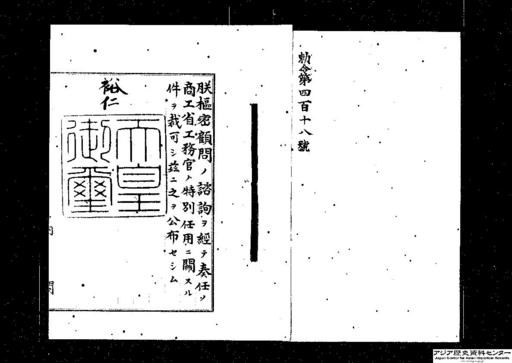 勅令第四百十八號
朕樞密顧問ノ諮詢ヲ經テ奏任ノ
商工省工務官ノ特別任用ニ關スル
件ヲ裁可シ茲ニ之ヲ公布セシム
裕仁
天皇
御璽
内
閣
アジア歴史資料センター
Japan Center for Asian Historical Records